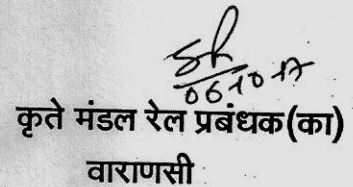 06.10.17
कृते मंडल रेल प्रबंधक(का)
वाराणसी